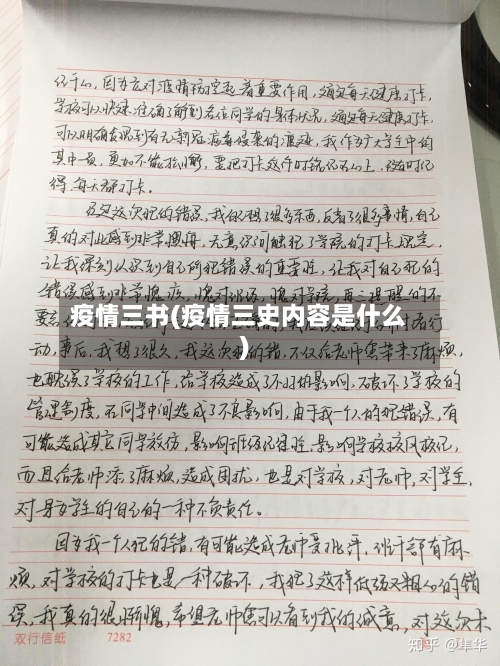 任于心，因为应对疫情防控起着重要作用，通过每天健康打卡，
学校可以快速准确了解到各位同学的具体状况，通过每天健康打卡，
可以明确查识到有无新冠病毒侵袭的痕迹，我作为广大学生中的
其中一员，更加不能松懈，要把打卡这件时统记于心上，时时记
得，每天都打卡。
经过这次犯的错误，我自己想了很多东西，反省了很多事情，自己
真的对此感到非常懊悔，无意识间触犯了学院的打卡规定，
让我深刻认识到自己所犯错误的重要性，让我对自己犯的
错误感到非常愧疚，愧对
疫情三书(疫情三史内容是什么
)
动，事后，我想了很久，我这次犯的错，不仅给老师您带来了麻烦，
也耽误了学校的工作，给学校造成了不好的影响，破坏了学校的
管理制度，在同学中间造成了不良影响，由于我一个人的犯错误，有
可能造成其它同学效仿，影响班级纪律性，影响学校校风校纪，
而且给老师添了麻烦，造成困扰，也是对学校，对老师，对学生，
对身为学生的自己的一种不负责任。
因为我一个人犯的错，有可能造成老师受批评，班干部有麻
烦，对学校的打卡也是一种破坏，我犯了这样低级又粗心的错
误，我真的很惭愧，希望老师您可以看到我的诚意，对这次未
双行信纸 7282
知乎